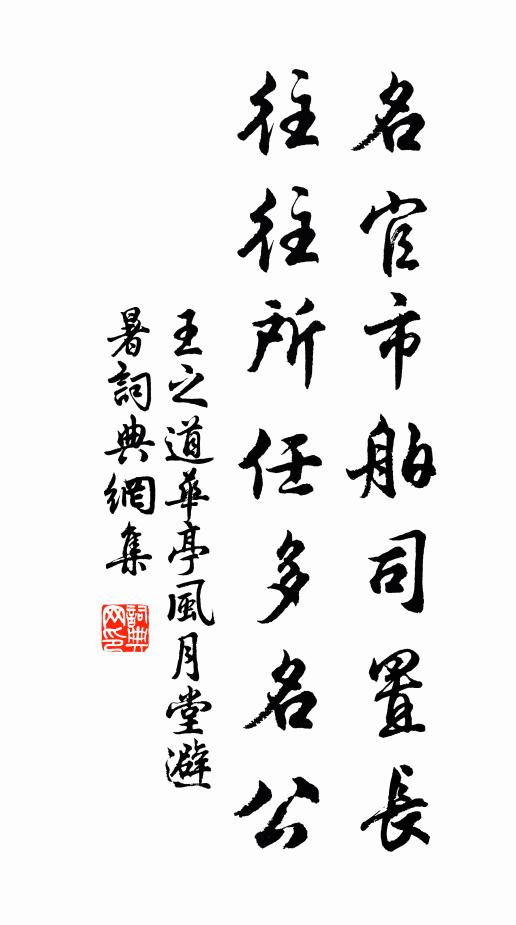 名官市舶司置長
往往所任多名公
王之道華亭風月堂避
暑詞典網集
詞典
網印